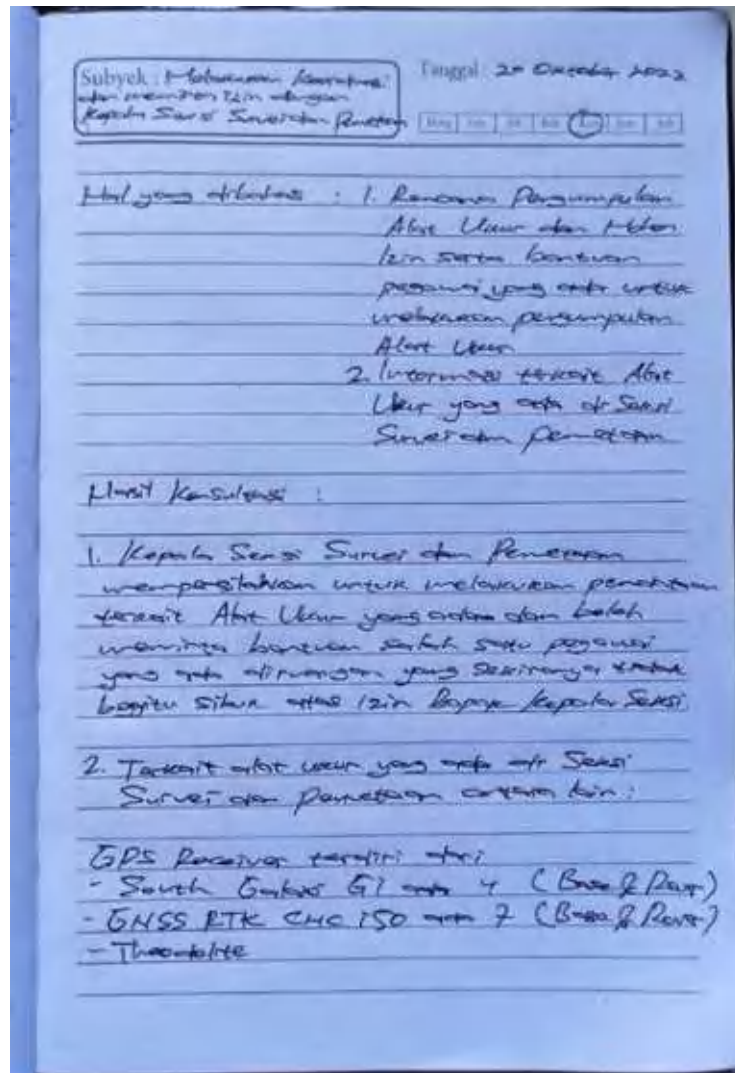 Subyek : Melakukan Konsultasi
dan meminta Izin dengan
Kepala Seksi Survei dan Pemetaan
Tanggal : 20 Oktober 2022
Hal yang dibahas : 1. Rencana Pengumpulan
Alat Ukur dan Mohon
Izin serta bantuan
pegawai yang ada untuk
melakukan pengumpulan
Alat Ukur
2. Informasi terkait Alat
Ukur yang ada di Seksi
Survei dan Pemetaan
Hasil Konsultasi :
1. Kepala Seksi Survei dan Pemetaan
mempersilahkan untuk melakukan
terkait Alat Ukur yang ada dan boleh
meminta bantuan salah satu pegawai
yang ada diruangan yang sekiranya tidak
begitu sibuk atas Izin Bapak Kepala Seksi
2. Terkait alat ukur yang ada di Seksi
Survei dan Pemetaan antara lain :
GPS Receiver terdiri dari
- South Galaxi G1 ada 4 (Base & Rover)
- GNSS RTK CHC i50 ada 7 (Base & Rover)
- Theodolite